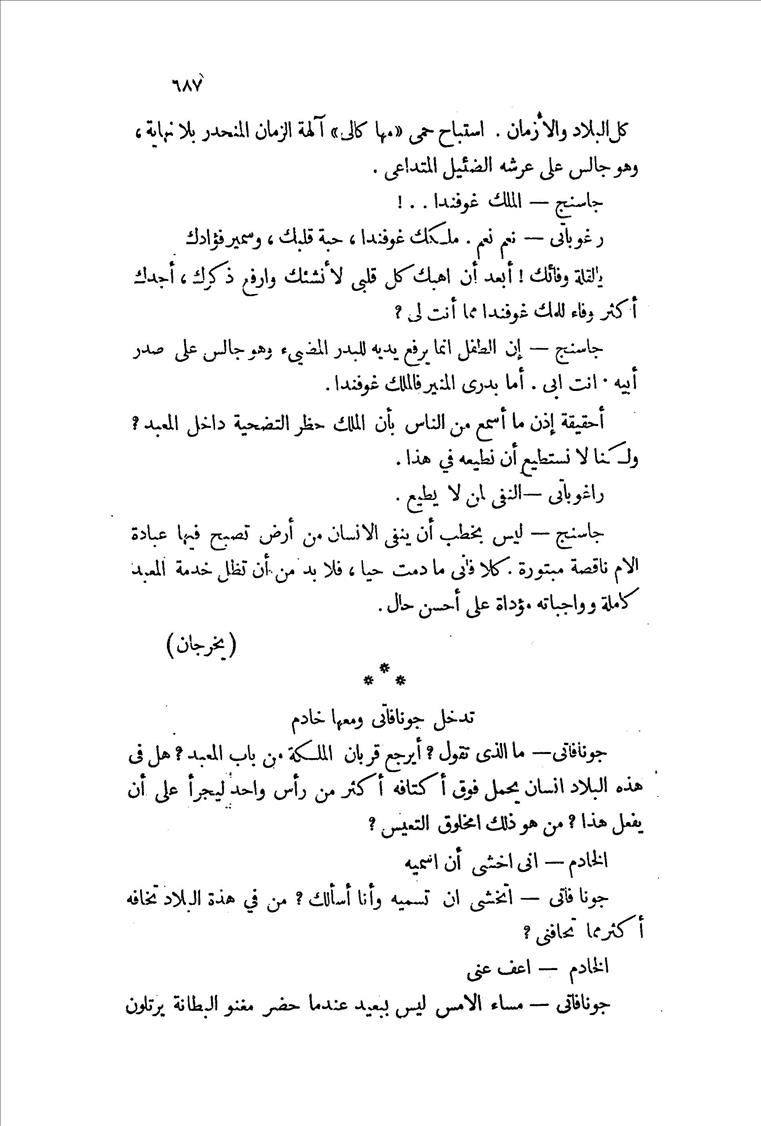 ٦٨٧
كل البلاد والأزمان . استباح حمى «مها كالى» آلهة الزمان المنحدر بلا نهاية ،
وهو جالس على عرشه الضئيل المتداعى .
جاسنج — الملك غوفندا . . !
رغوباتى — نعم نعم . ملكك غوفندا ، حبة قلبك ، وسمير فؤادك
يالقلة وفائك ! أبعد أن اهبك كل قلبى لأنشئك وارفع ذكرك ، أجدك
أكثر وفاء للملك غوفندا مما أنت لى ؟
جاسنج — إن الطفل انما يرفع يديه للبدر المضيىء وهو جالس على صدر
أبيه . انت ابى . أما بدرى المنير فالملك غوفندا .
أحقيقة إذن ما أسمع من الناس بأن الملك حظر التضحية داخل المعبد ؟
ولكنا لا نستطيع أن نطيعه في هذا .
راغوباتى — النفى لمن لا يطيع .
جاسنج — ليس بخطب أن ينفى الانسان من أرض تصبح فيها عبادة
الام ناقصة مبتورة . كلا فانى ما دمت حيا ، فلا بد من أن تظل خدمة المعبد
كاملة وواجباته مؤداة على أحسن حال .
(يخرجان)
* * *
تدخل جونافاتى ومعها خادم
جونافاتى — ما الذى تقول ؟ أيرجع قربان الملكة من باب المعبد ؟ هل فى
هذه البلاد انسان يحمل فوق أكتافه أكثر من رأس واحد ليجرأ على أن
يفعل هذا ؟ من هو ذلك المخلوق التعيس ؟
الخادم — انى اخشى أن اسميه
جونا فاتى — اتخشى ان تسميه وأنا أسألك ؟ من في هذة البلاد تخافه
أكثر مما تخافنى ؟
الخادم — اعف عنى
جونافاتى — مساء الامس ليس ببعيد عندما حضر مغنو البطانة يرتلون